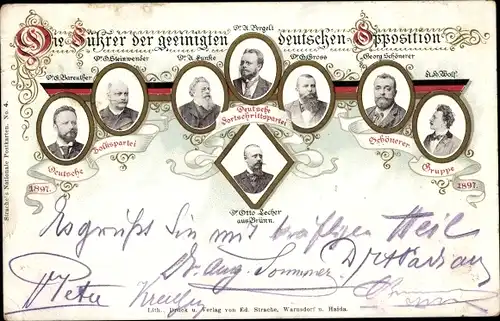 Die Führer der geeinigten deutschen Opposition
Dr. A. Pergelt
Dr. O. Steinwender
Dr. A. Funke
Dr. G. Gross
Georg Schönerer
Dr. E. Bareuther
K. H. Wolf
Deutsche
Volkspartei
Deutsche
Fortschrittspartei
Schönerer
Gruppe
1897.
1897.
Dr. Otto Lecher
aus Brünn.
Strache's Nationale Postkarten. No. 4.
Es grüßt Sie mit kräftigem Heil
Dr. Aug. Sommer
Peter
Lith., Druck u. Verlag von Ed. Strache, Warnsdorf u. Haida.